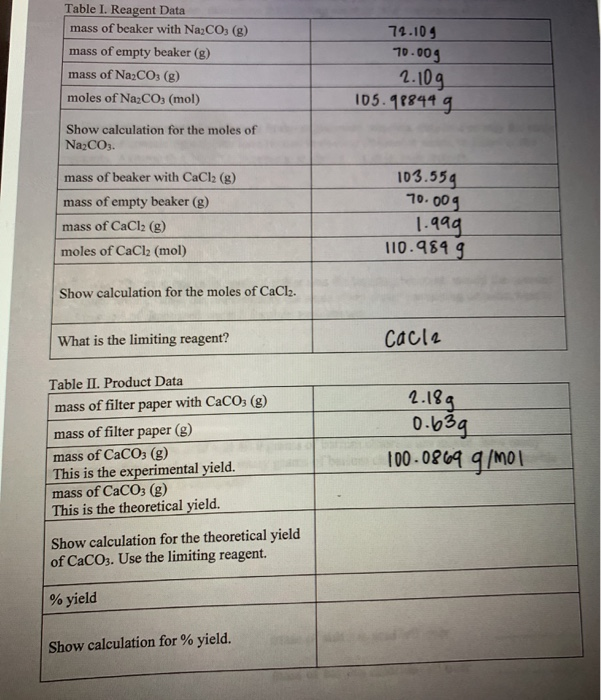 Table I. Reagent Data
mass of beaker with Na₂CO₃ (g) 72.10g
mass of empty beaker (g) 70.00g
mass of Na₂CO₃ (g) 2.10g
moles of Na₂CO₃ (mol) 105.98844 g
Show calculation for the moles of
Na₂CO₃.
mass of beaker with CaCl₂ (g) 103.55g
mass of empty beaker (g) 70.00g
mass of CaCl₂ (g) 1.99g
moles of CaCl₂ (mol) 110.989 g
Show calculation for the moles of CaCl₂.
What is the limiting reagent? CaCl2
Table II. Product Data
mass of filter paper with CaCO₃ (g) 2.18g
mass of filter paper (g) 0.63g
mass of CaCO₃ (g) 100.0869 g/mol
This is the experimental yield.
mass of CaCO₃ (g)
This is the theoretical yield.
Show calculation for the theoretical yield
of CaCO₃. Use the limiting reagent.
% yield
Show calculation for % yield.